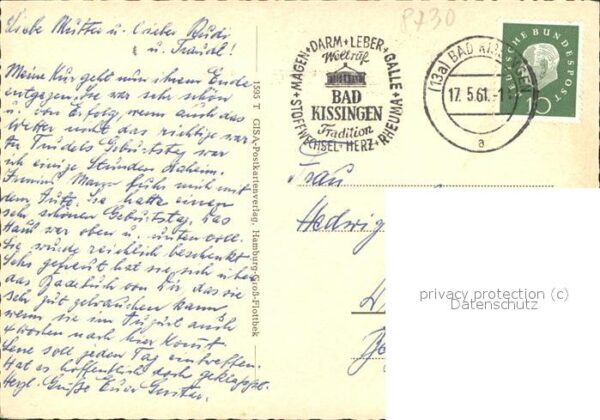 Liebe Mutter u. lieber Rudi
u. Traudl!
Meine Kur geht nun ihrem Ende
entgegen. Sie war sehr schön
u. von Erfolg, wenn auch das
Wetter nicht das richtige war
Geburtstag war
ich einige Stunden daheim.
fuhr mich mit
dem Auto. Sie hatte einen
sehr schönen Geburtstag. Das
Haus war oben u. unten voll.
Sie wurde reichlich beschenkt
Sehr gefreut hat sie sich über
das Badetuch von Dir, das sie
sehr gut gebrauchen kann,
wenn sie im August auch
4 Wochen nach hier kommt
Lene soll jeden Tag eintreffen.
Hat es hoffentlich doch geklappt.
Herzl. Grüße Euer Gustav.
1595 T GISA-Postkartenverlag, Hamburg-Groß-Flottbek
8730
STOFFWECHSEL+MAGEN+DARM+LEBER+GALLE+RHEUMA+HERZ+
Weltruf
BAD
KISSINGEN
Tradition
(13a) BAD KISSINGEN
17.5.61.-1
a
DEUTSCHE BUNDESPOST
10
Frau
Hedwig
privacy protection (c)
Datenschutz